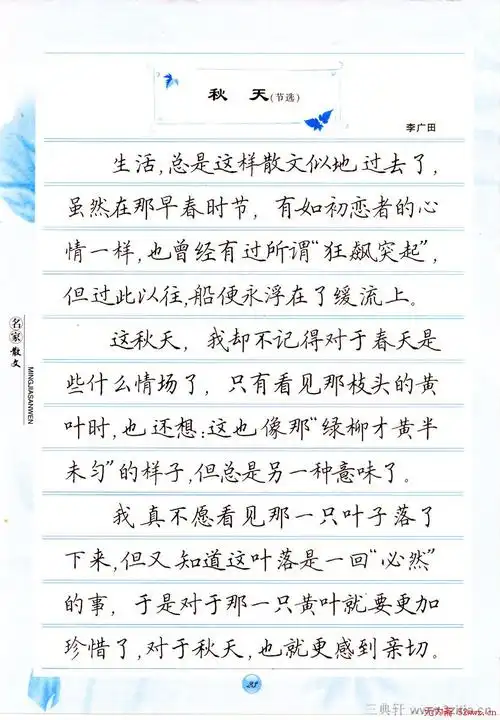 秋 天(节选)
李广田
生活,总是这样散文似地过去了,
虽然在那早春时节,有如初恋者的心
情一样,也曾经有过所谓“狂飙突起”,
但过此以往,船便永浮在了缓流上。
这秋天,我却不记得对于春天是
些什么情场了,只有看见那枝头的黄
叶时,也还想:这也像那“绿柳才黄半
未匀”的样子,但总是另一种意味了。
我真不愿看见那一只叶子落了
下来,但又知道这叶落是一回“必然”
的事,于是对于那一只黄叶就要更加
珍惜了,对于秋天,也就更感到亲切。
名家散文
MINGJIASANWEN